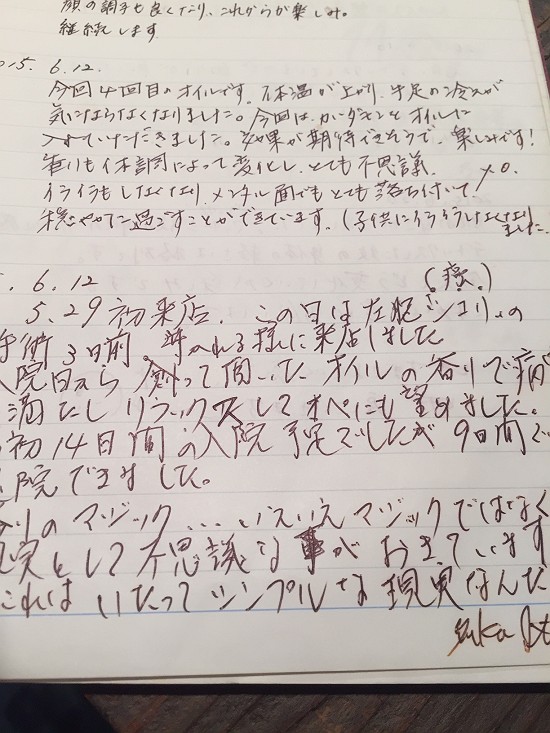 顔の調子も良くなり、これからが楽しみ。
継続します
015. 6.12.
今回4回目のオイルです。体温が上がり、手足の冷えが
気にならなくなりました。今回は、カルダモンをオイルに
入れていただきました。効果が期待できそうで、楽しみです!
香りも体調によって変化し、とても不思議。
イライラもしなくなり、メンタル面でもとても落ち付いて、
穏やかに過ごすことができています。(子供にイライラしなくなり
ました。
. 6.12
(癌。)
5.29 初来店. この日は左腕 シコリの
手術3日前、導かれる様に来店しました
入院日から 創って頂いた オイルの香りで病
満たし リラックスしてオペにも望めました。
初14日間の入院予定でしたが 9日間で
退院できました。
香りのマジック... いえいえマジックではなく
現実として不思議な事がおきています
これは いたって シンプルな現実なんだ